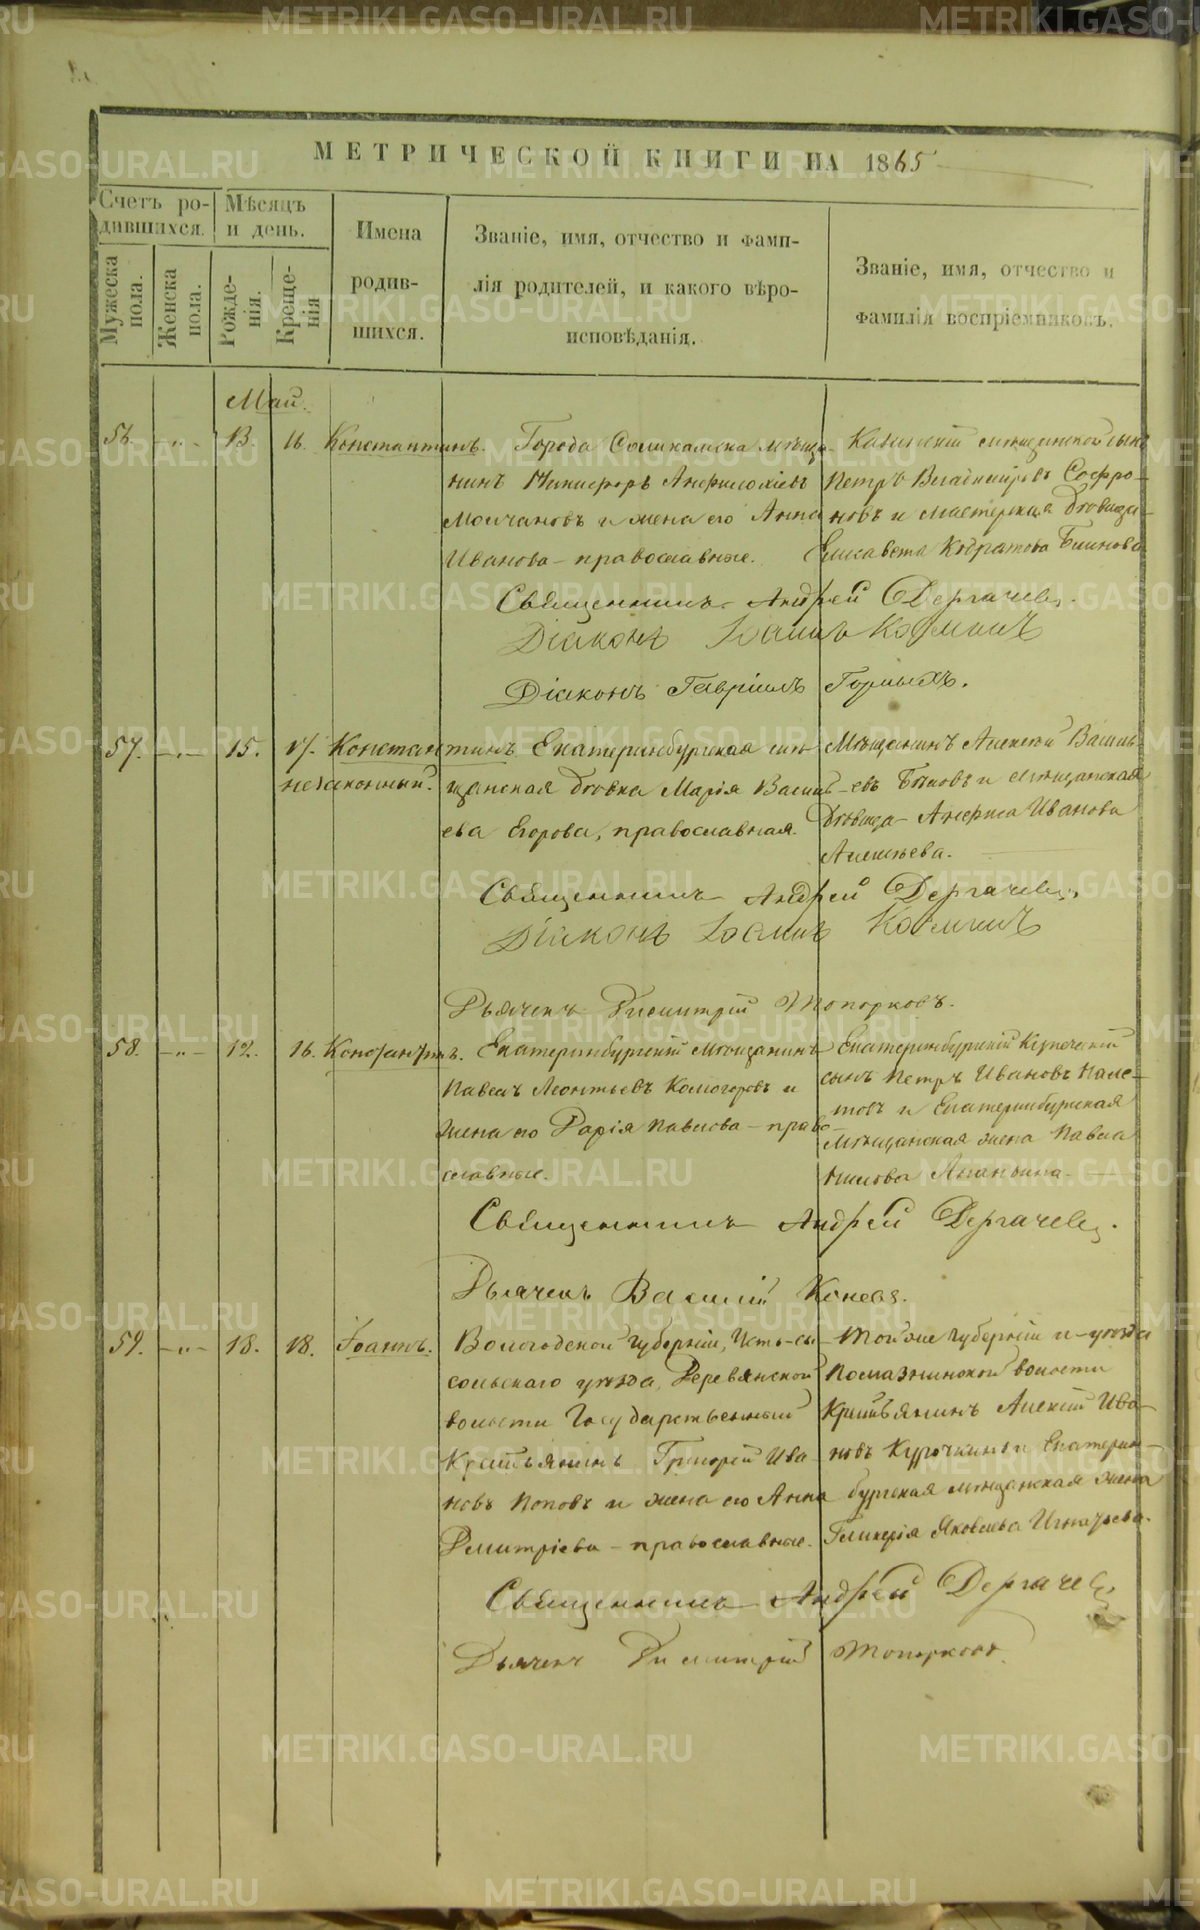 МЕТРИЧЕСКОЙ КНИГИ НА 1865
Счетъ ро-
дившихся.
Мѣсяцъ
и день.
Мужеска
пола.
Женска
пола.
Рожде-
нія.
Креще-
нія
Имена
родив-
шихся.
Званіе, имя, отчество и фами-
лія родителей, и какого вѣро-
исповѣданія.
Званіе, имя, отчество и
фамилія воспріемниковъ.
Май.
56. 13. 16. Константинъ.
Города Соликамска мѣща-
нинъ Никифоръ Амфилохіевъ
Молчановъ и жена его Анна
Иванова – православные.
мѣщанской сынъ
Петръ Владиміровъ Софро-
новъ и мастерская дѣвица
Елисавета Кодратова Блинова
Священникъ Андрей Дергачевъ.
Діаконъ Іоаннъ Косминъ
Діаконъ Гавріилъ Горныхъ.
57. 15. 17. Константинъ
незаконный.
Екатеринбургская мѣ-
щанская дѣвка Марія Василь-
ева Егорова, православная.
Мѣщанинъ Алексѣй Василь-
евъ Быковъ и мѣщанская
дѣвица Анфиса Иванова
Священникъ Андрей Дергачевъ.
Діаконъ Іоаннъ Косминъ
Дьячекъ Димитрій Топорковъ.
58. 12. 16. Константинъ.
Екатеринбургскій мѣщанинъ
Павелъ Леонтьевъ Комогоровъ и
жена его Дарія Павлова – право-
славные.
Екатеринбургскій Купеческій
сынъ Петръ Ивановъ
и Екатеринбургская
мѣщанская жена Павла
Нилова Ананьина.
Священникъ Андрей Дергачевъ.
Дьячекъ Василій Коневъ.
59. 18. 18. Іоаннъ.
Вологодской губерніи, Усть-сы-
сольскаго уѣзда, Деревянской
волости Государственный
Крестьянинъ Григорій Ива-
новъ Поповъ и жена его Анна
Димитріева – православные.
Той же губерніи и уѣзда
волости
Крестьянинъ Алексій Ива-
новъ Курочкинъ и Екатерин-
бургская мѣщанская жена
Гликерія Яковлева Игнатьева.
Священникъ Андрей Дергачевъ
Дьячекъ Димитрій Топорковъ
METRIKI.GASO-URAL.RU